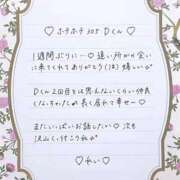 ♡ ホテホテ 305 Dくん ♡
1週間ぶりに…♡ 遠い所から会い
に来てくれてありがとう( )嬉しい♡
Dくん2回目とは思えないくらい仲良
くなっちゃったの 長く居れて幸せー♡
またいっぱいお話したい♡ 次も
沢山
♡れい♡